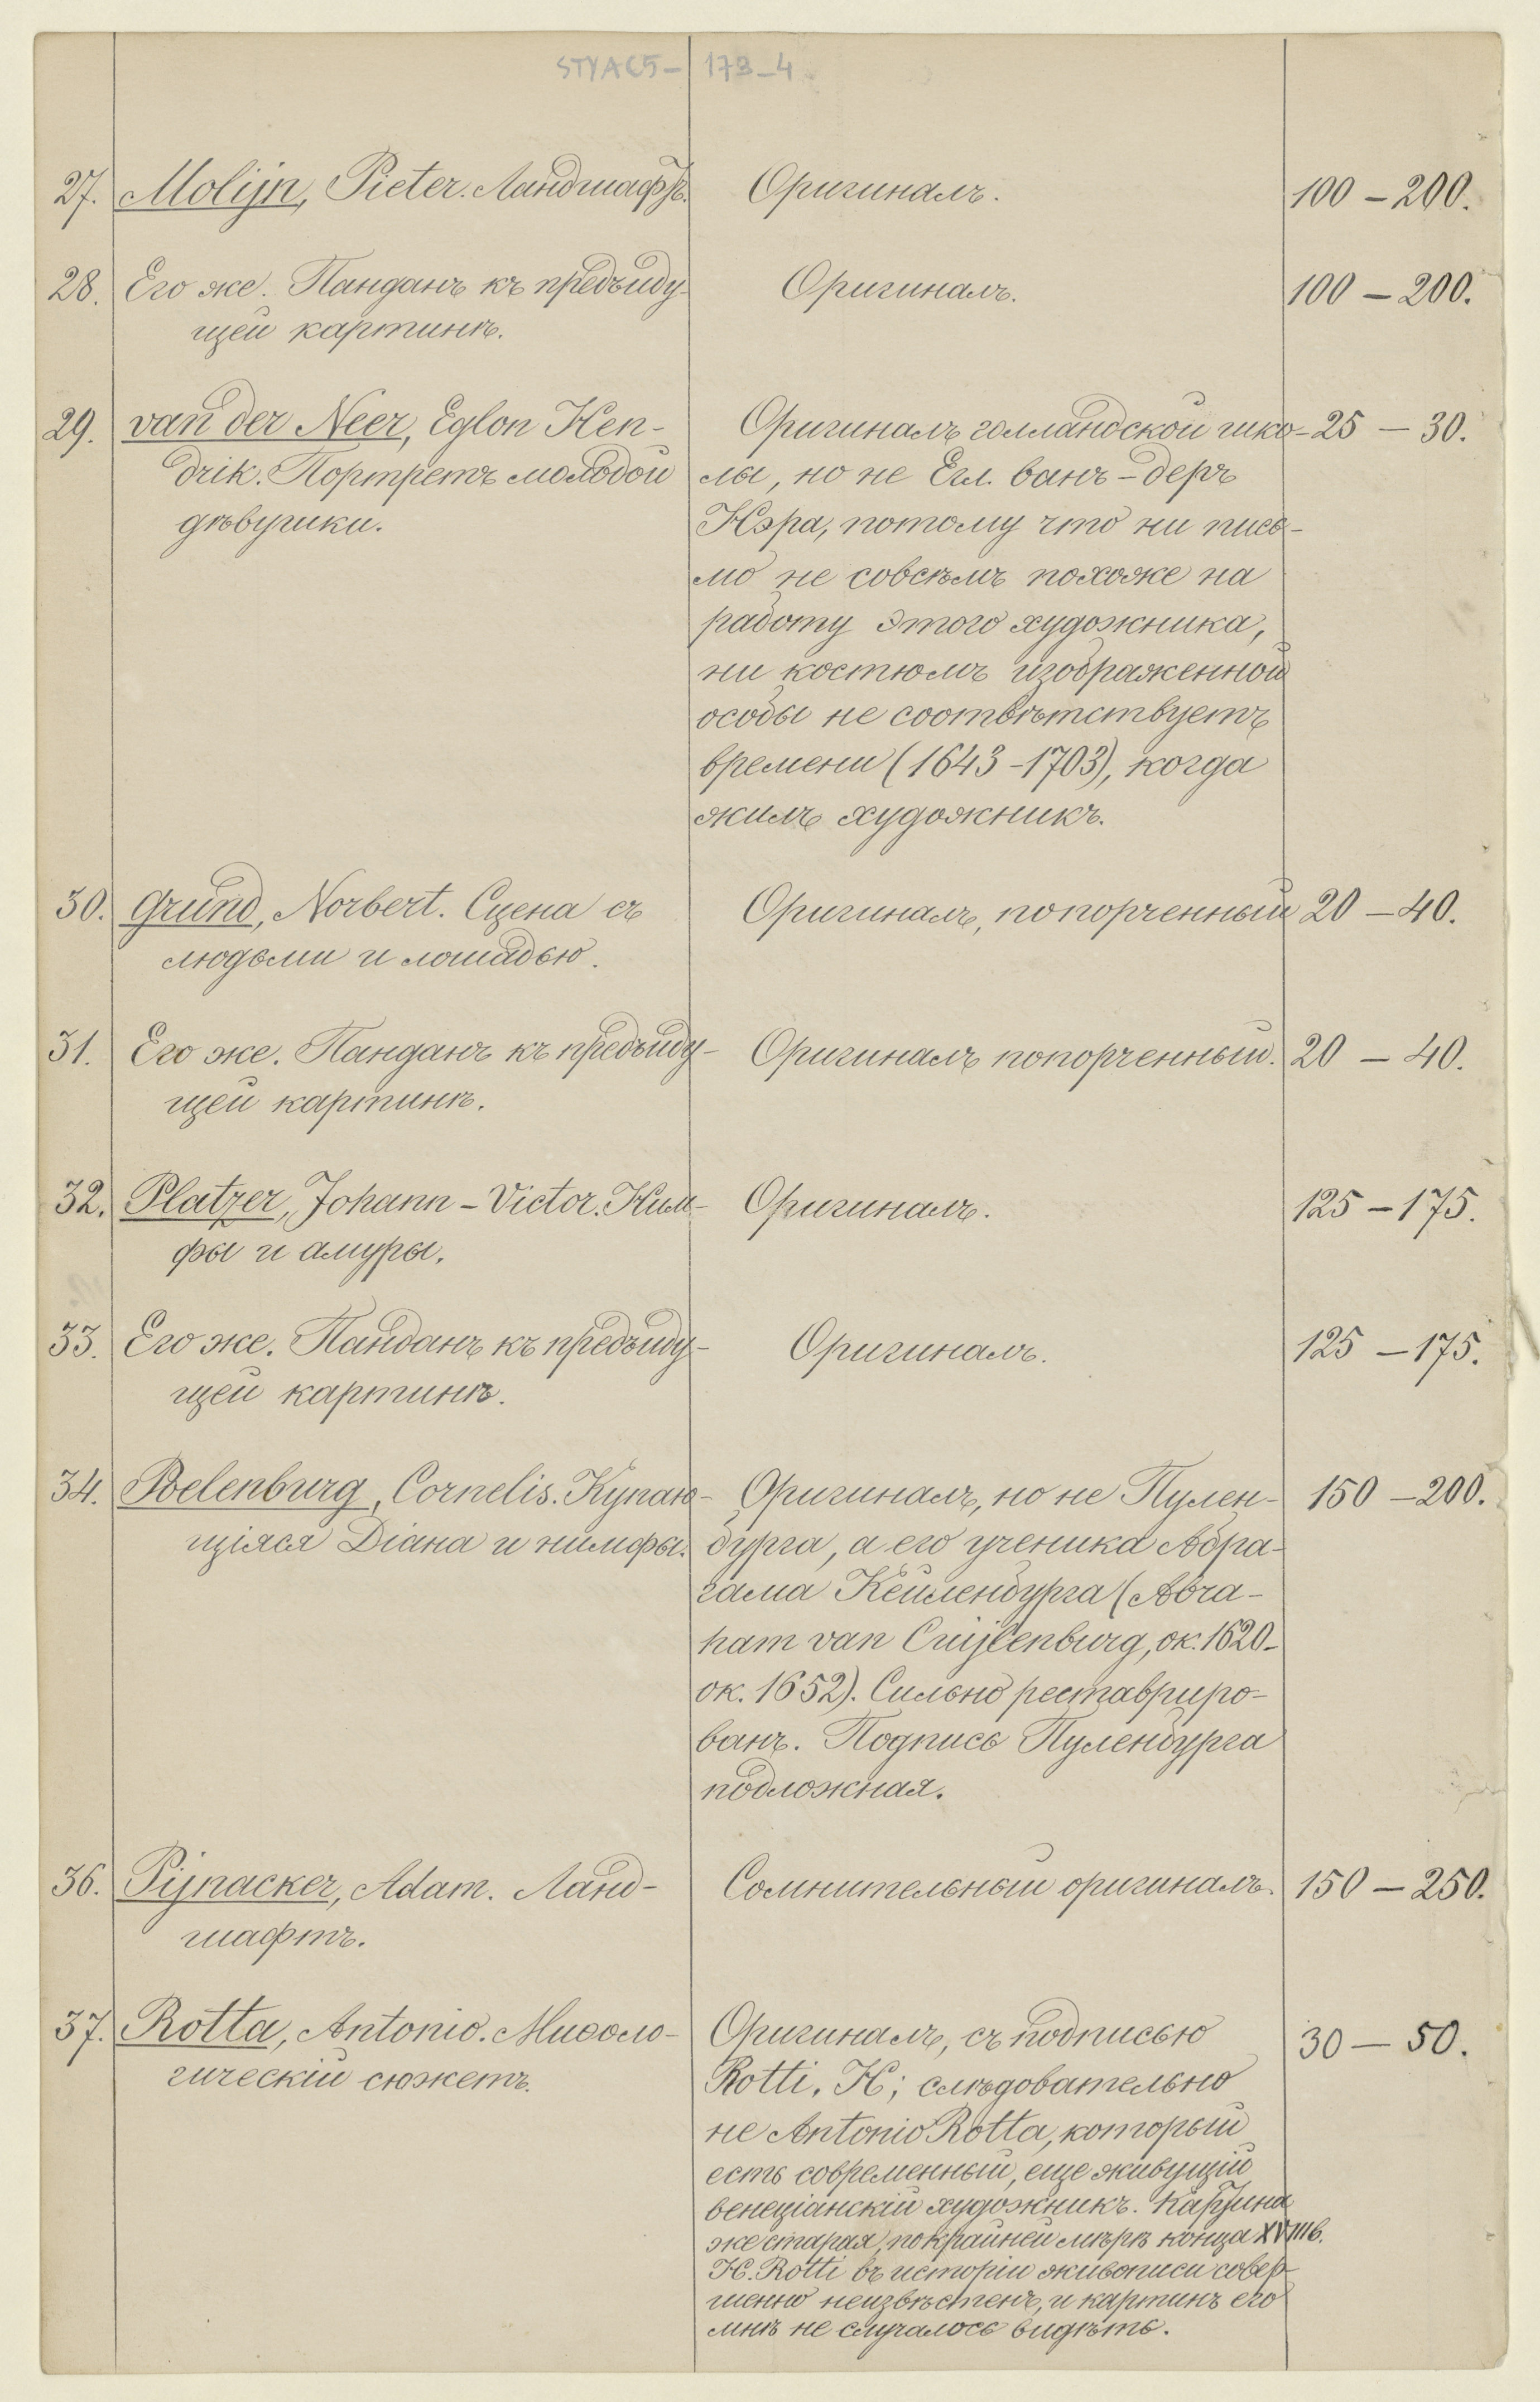 STYAC5- 173-4
27. Molijn, Pieter. Ландшафтъ. Оригиналъ. 100 - 200.
28. Его же. Панданъ къ предъиду- Оригиналъ. 100 - 200.
щей картинѣ.
29. van der Neer, Eglon Hen-
drik. Портретъ молодой
дѣвушки.
Оригиналъ голландской шко- 25 - 30.
лы, но не Егл. ванъ-деръ
Нэра, потому что ни пись-
мо не совсѣмъ похоже на
работу этого художника,
ни костюмъ изображенной
особы не соотвѣтствуетъ
времени (1643-1703), когда
жилъ художникъ.
30. Grund, Norbert. Сцена съ Оригиналъ, попорченный 20 - 40.
людьми и лошадью.
31. Его же. Панданъ къ предъиду- Оригиналъ попорченный. 20 - 40.
щей картинѣ.
32. Platzer, Johann-Victor. Ним- Оригиналъ. 125 - 175.
фы и амуры.
33. Его же. Панданъ къ предъиду- Оригиналъ. 125 - 175.
щей картинѣ.
34. Poelenburg, Cornelis. Купаю-
щіяся Діана и нимфы.
Оригиналъ, но не Пулен- 150 - 200.
бурга, а его ученика Абра-
гама Кейленбурга (Abra-
ham van Cuijlenburg, ок. 1620-
ок. 1652). Сильно реставриро-
ванъ. Подпись Пуленбурга
подложная.
36. Pijnacker, Adam. Ланд- Сомнительный оригиналъ. 150 - 250.
шафтъ.
37. Rotta, Antonio. Миѳоло-
гическій сюжетъ.
Оригиналъ, съ подписью 30 - 50.
Rotti, H; слѣдовательно
не Antonio Rotta, который
есть современный, еще живущій
венеціанскій художникъ. Картина
же старая, по крайней мѣрѣ конца XVIII в.
H. Rotti въ исторіи живописи совер-
шенно неизвѣстенъ, и картинъ его
мнѣ не случалось видѣть.